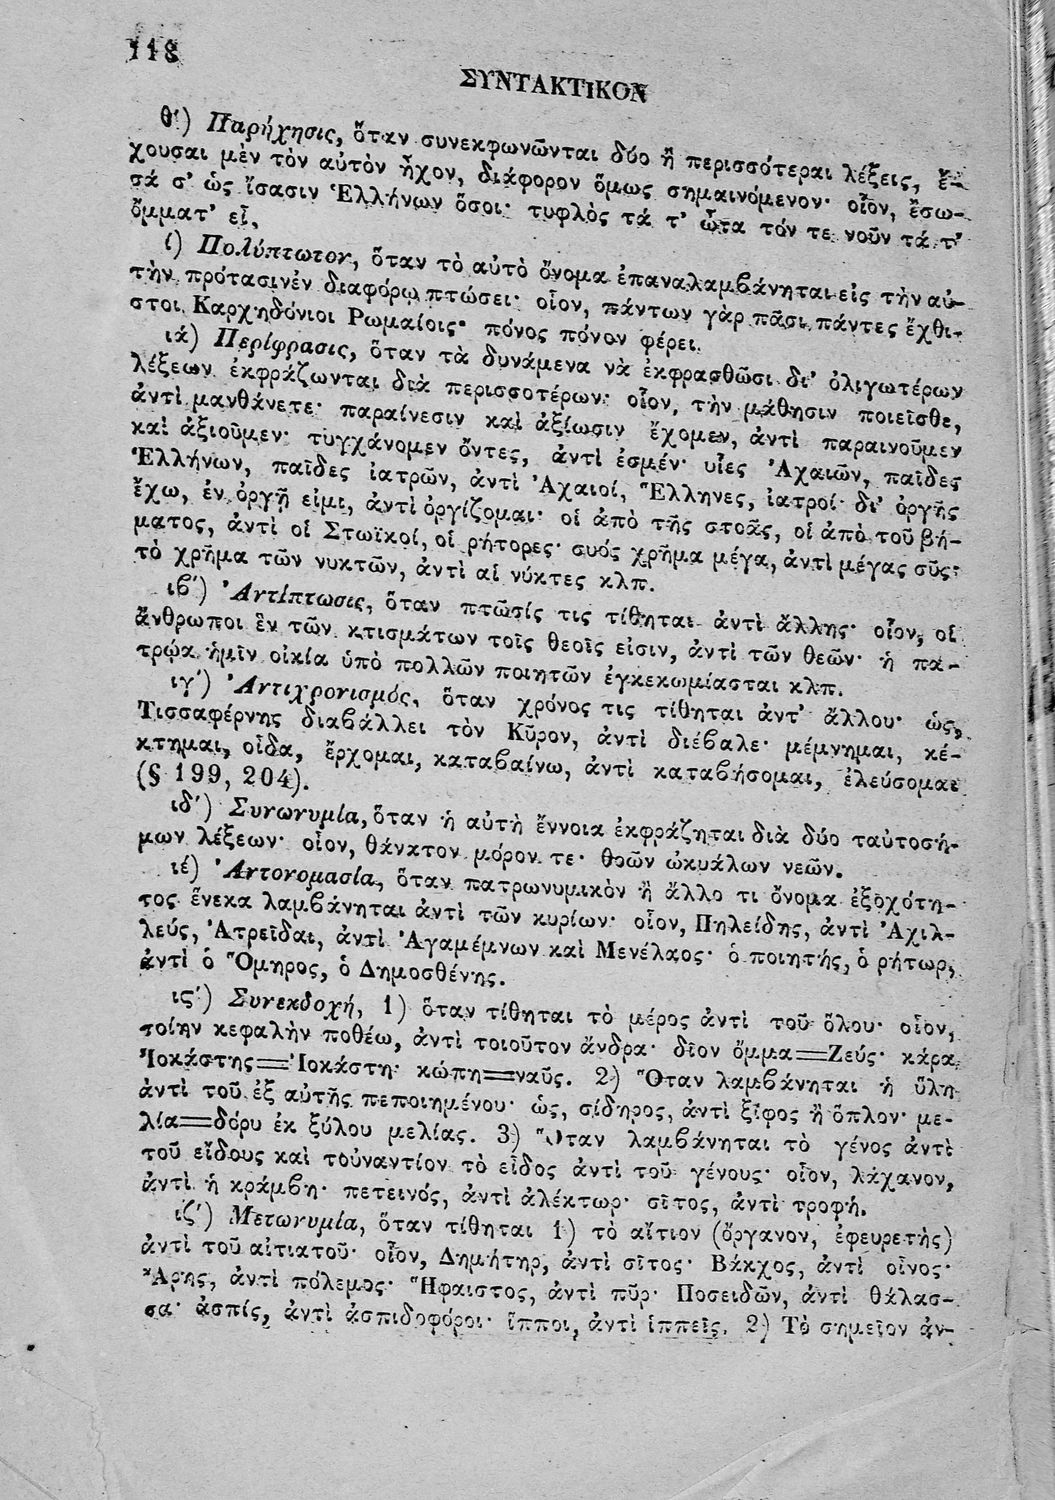 118
ΣΥΝΤΑΚΤΙΚΟΝ
θ΄) Παρήχησις, ὅταν συνεκφωνῶνται δύο ἢ περισσότεραι λέξεις, ἔ-
χουσαι μὲν τὸν αὐτὸν ἦχον, διάφορον ὅμως σημαινόμενον· οἷον, ἔσω-
σά σ᾽ ὡς ἴσασιν Ἑλλήνων ὅσοι· τυφλὸς τά τ᾽ ὦτα τόν τε νοῦν τά τ᾽
ὄμματ᾽ εἶ.
ί) Πολύπτωτον, ὅταν τὸ αὐτὸ ὄνομα ἐπαναλαμβάνηται εἰς τὴν αὐ-
τὴν πρότασιν ἐν διαφόρῳ πτώσει· οἷον, πάντων γὰρ πᾶσι πάντες ἔχθι-
στοι Καρχηδόνιοι Ρωμαίοις· πόνος πόνον φέρει.
ιά) Περίφρασις, ὅταν τὰ δυνάμενα νὰ ἐκφρασθῶσι δι᾽ ὀλιγωτέρων
λέξεων ἐκφράζωνται διὰ περισσοτέρων· οἷον, τὴν μάθησιν ποιεῖσθε,
ἀντὶ μανθάνετε· παραίνεσιν καὶ ἀξίωσιν ἔχομεν, ἀντὶ παραινοῦμεν
καὶ ἀξιοῦμεν· τυγχάνομεν ὄντες, ἀντὶ ἐσμέν· υἷες Ἀχαιῶν, παῖδες
Ἑλλήνων, παῖδες ἰατρῶν, ἀντὶ Ἀχαιοί, Ἕλληνες, ἰατροί· δι᾽ ὀργῆς
ἔχω, ἐν ὀργῇ εἰμι, ἀντὶ ὀργίζομαι· οἱ ἀπὸ τῆς στοᾶς, οἱ ἀπὸ τοῦ βή-
ματος, ἀντὶ οἱ Στωϊκοί, οἱ ῥήτορες· συός χρῆμα μέγα, ἀντὶ μέγας σῦς·
τὸ χρῆμα τῶν νυκτῶν, ἀντὶ αἱ νύκτες κλπ.
ιβ΄) Ἀντίπτωσις, ὅταν πτῶσίς τις τίθηται ἀντὶ ἄλλης· οἷον, οἱ
ἄνθρωποι ἓν τῶν κτισμάτων τοῖς θεοῖς εἰσιν, ἀντὶ τῶν θεῶν· ἡ πα-
τρῴα ἡμῖν οἰκία ὑπὸ πολλῶν ποιητῶν ἐγκεκωμίασται κλπ.
ιγ΄) Ἀντιχρονισμός, ὅταν χρόνος τις τίθηται ἀντ᾽ ἄλλου· ὡς,
Τισσαφέρνης διαβάλλει τὸν Κῦρον, ἀντὶ διέβαλε· μέμνημαι, κέ-
κτημαι, οἶδα, ἔρχομαι, καταβαίνω, ἀντὶ καταβήσομαι, ἐλεύσομαι
(§ 199, 204).
ιδ΄) Συνωνυμία, ὅταν ἡ αὐτὴ ἔννοια ἐκφράζηται διὰ δύο ταὐτοσή-
μων λέξεων· οἷον, θάνατον μόρον τε· θοῶν ὠκυάλων νεῶν.
ιέ) Ἀντονομασία, ὅταν πατρωνυμικὸν ἢ ἄλλο τι ὄνομα ἐξοχότη-
τος ἕνεκα λαμβάνηται ἀντὶ τῶν κυρίων· οἷον, Πηλείδης, ἀντὶ Ἀχιλ-
λεύς, Ἀτρεῖδαι, ἀντὶ Ἀγαμέμνων καὶ Μενέλαος· ὁ ποιητής, ὁ ῥήτωρ,
ἀντὶ ὁ Ὅμηρος, ὁ Δημοσθένης.
ις΄) Συνεκδοχή, 1) ὅταν τίθηται τὸ μέρος ἀντὶ τοῦ ὅλου· οἷον,
τοίην κεφαλὴν ποθέω, ἀντὶ τοιοῦτον ἄνδρα· δῖον ὄμμα=Ζεύς· κάρα
Ἰοκάστης=Ἰοκάστη· κώπη=ναῦς. 2) Ὅταν λαμβάνηται ἡ ὕλη
ἀντὶ τοῦ ἐξ αὐτῆς πεποιημένου· ὡς, σίδηρος, ἀντὶ ξίφος ἢ ὅπλον· με-
λία=δόρυ ἐκ ξύλου μελίας. 3) Ὅταν λαμβάνηται τὸ γένος ἀντὶ
τοῦ εἴδους καὶ τοὐναντίον τὸ εἶδος ἀντὶ τοῦ γένους· οἷον, λάχανον,
ἀντὶ ἡ κράμβη· πετεινός, ἀντὶ ἀλέκτωρ· σῖτος, ἀντὶ τροφή.
ιζ΄) Μετωνυμία, ὅταν τίθηται 1) τὸ αἴτιον (ὄργανον, ἐφευρετὴς)
ἀντὶ τοῦ αἰτιατοῦ· οἷον, Δημήτηρ, ἀντὶ σῖτος· Βάκχος, ἀντὶ οἶνος·
Ἄρης, ἀντὶ πόλεμος· Ἥφαιστος, ἀντὶ πῦρ· Ποσειδῶν, ἀντὶ θάλασ-
σα· ἀσπίς, ἀντὶ ἀσπιδοφόροι· ἵπποι, ἀντὶ ἱππεῖς. 2) Τὸ σημεῖον ἀν-